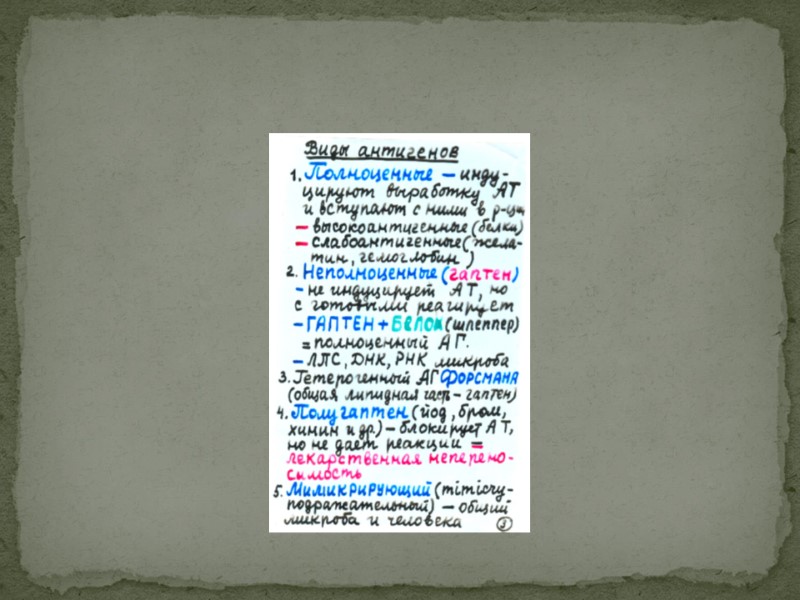 Виды антигенов
1. Полноценные – инду-
цируют выработку АТ
и вступают с ними в р-ции
– высокоантигенные (белки)
– слабоантигенные (жела-
тин, гемоглобин)
2. Неполноценные (гаптен)
– не индуцирует АТ, но
с готовыми реагирует
– ГАПТЕН + БЕЛОК (шлеппер)
= полноценный АГ.
– ЛПС, ДНК, РНК микроба
3. Гетерогенный АГ ФОРСМАНА
(общая липидная часть – гаптен)
4. Полугаптен (йод, бром,
химин и др.) – блокирует АТ,
но не дает реакции =
лекарственная неперено-
симость
5. Мимикрирующий (mimicry-
подражательный) – общий
микроба и человека
3